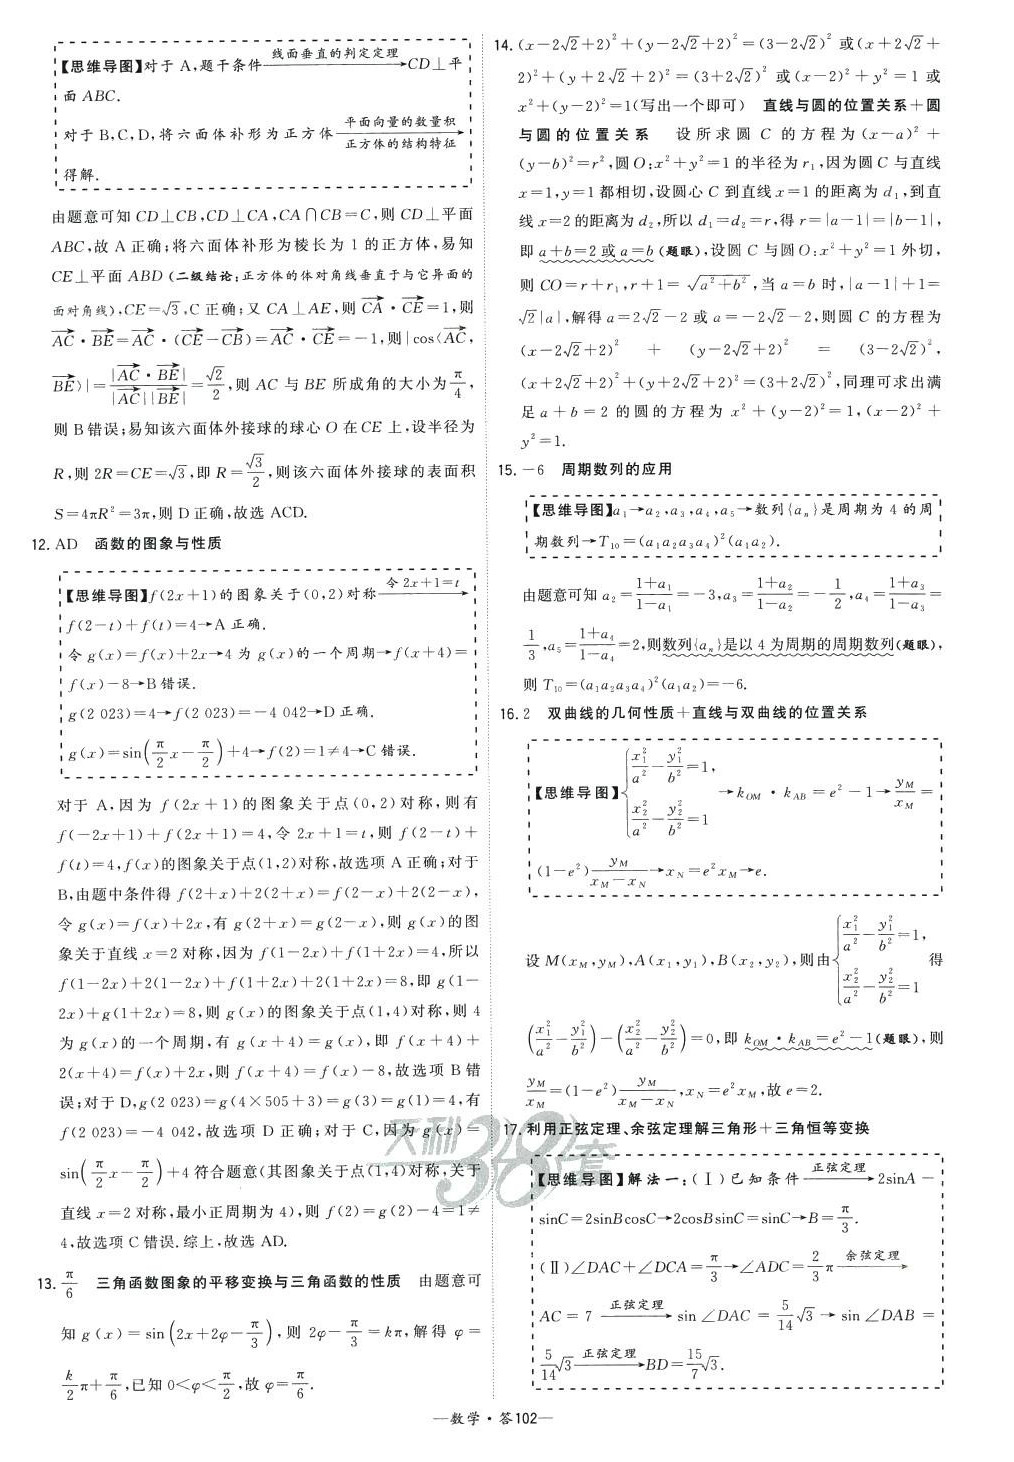 【思维导图】对于 A,题干条件 线面垂直的判定定理→ CD⊥平
面 ABC.
对于 B,C,D,将六面体补形为正方体 平面向量的数量积/正方体的结构特征→
得解.
由题意可知 CD⊥CB,CD⊥CA,CA∩CB=C,则 CD⊥平面
ABC,故 A 正确;将六面体补形为棱长为 1 的正方体,易知
CE⊥平面 ABD(二级结论:正方体的体对角线垂直于与它异面的
面对角线),CE=√3,C 正确;又 CA⊥AE,则 \overrightarrow{CA}·\overrightarrow{CE}=1,则
\overrightarrow{AC}·\overrightarrow{BE}=\overrightarrow{AC}·(\overrightarrow{CE}-\overrightarrow{CB})=\overrightarrow{AC}·\overrightarrow{CE}=-1,则|cos⟨\overrightarrow{AC},
\overrightarrow{BE}⟩|=|\overrightarrow{AC}·\overrightarrow{BE}|/(|\overrightarrow{AC}||\overrightarrow{BE}|)=√2/2,则 AC 与 BE 所成角的大小为 π/4,
则 B 错误;易知该六面体外接球的球心 O 在 CE 上,设半径为
R,则 2R=CE=√3,即 R=√3/2,则该六面体外接球的表面积
S=4πR²=3π,则 D 正确,故选 ACD.
12. AD 函数的图象与性质
【思维导图】f(2x+1)的图象关于(0,2)对称 令 2x+1=t→
f(2-t)+f(t)=4→A 正确.
令 g(x)=f(x)+2x→4 为 g(x)的一个周期→f(x+4)=
f(x)-8→B 错误.
g(2 023)=4→f(2 023)=-4 042→D 正确.
g(x)=sin(π/2 x-π/2)+4→f(2)=1≠4→C 错误.
对于 A,因为 f(2x+1)的图象关于点(0,2)对称,则有
f(-2x+1)+f(2x+1)=4,令 2x+1=t,则 f(2-t)+
f(t)=4,f(x)的图象关于点(1,2)对称,故选项 A 正确;对于
B,由题中条件得 f(2+x)+2(2+x)=f(2-x)+2(2-x),
令 g(x)=f(x)+2x,有 g(2+x)=g(2-x),则 g(x)的图
象关于直线 x=2 对称,因为 f(1-2x)+f(1+2x)=4,所以
f(1-2x)+2(1-2x)+f(1+2x)+2(1+2x)=8,即 g(1-
2x)+g(1+2x)=8,则 g(x)的图象关于点(1,4)对称,则 4
为 g(x)的一个周期,有 g(x+4)=g(x),即 f(x+4)+
2(x+4)=f(x)+2x,则 f(x+4)=f(x)-8,故选项 B 错
误;对于 D,g(2 023)=g(4×505+3)=g(3)=g(1)=4,有
f(2 023)=-4 042,故选项 D 正确;对于 C,因为 g(x)=
sin(π/2 x-π/2)+4 符合题意(其图象关于点(1,4)对称,关于
直线 x=2 对称,最小正周期为 4),则 f(2)=g(2)-4=1≠
4,故选项 C 错误.综上,故选 AD.
13. π/6 三角函数图象的平移变换与三角函数的性质 由题意可
知 g(x)=sin(2x+2φ-π/3),则 2φ-π/3=kπ,解得 φ=
k/2 π+π/6,已知 0<φ<π/2,故 φ=π/6.
14. (x-2√2+2)²+(y-2√2+2)²=(3-2√2)² 或(x+2√2+
2)²+(y+2√2+2)²=(3+2√2)² 或(x-2)²+y²=1 或
x²+(y-2)²=1(写出一个即可) 直线与圆的位置关系+圆
与圆的位置关系 设所求圆 C 的方程为(x-a)²+
(y-b)²=r²,圆 O:x²+y²=1 的半径为 r₁,因为圆 C 与直线
x=1,y=1 都相切,设圆心 C 到直线 x=1 的距离为 d₁,到直
线 x=2 的距离为 d₂,所以 d₁=d₂=r,得 r=|a-1|=|b-1|,
即 a+b=2 或 a=b(题眼),设圆 C 与圆 O:x²+y²=1 外切,
则 CO=r+r₁,r+1=√(a²+b²),当 a=b 时,|a-1|+1=
√2|a|,解得 a=2√2-2 或 a=-2√2-2,则圆 C 的方程为
(x-2√2+2)²+(y-2√2+2)²=(3-2√2)²,
(x+2√2+2)²+(y+2√2+2)²=(3+2√2)²,同理可求出满
足 a+b=2 的圆的方程为 x²+(y-2)²=1,(x-2)²+
y²=1.
15. -6 周期数列的应用
【思维导图】a₁→a₂,a₃,a₄,a₅→数列{aₙ}是周期为 4 的周
期数列→T₁₀=(a₁a₂a₃a₄)²(a₁a₂).
由题意可知 a₂=(1+a₁)/(1-a₁)=-3,a₃=(1+a₂)/(1-a₂)=-1/2,a₄=(1+a₃)/(1-a₃)=
1/3,a₅=(1+a₄)/(1-a₄)=2,则数列{aₙ}是以 4 为周期的周期数列(题眼),
则 T₁₀=(a₁a₂a₃a₄)²(a₁a₂)=-6.
16. 2 双曲线的几何性质+直线与双曲线的位置关系
【思维导图】{x₁²/a²-y₁²/b²=1, x₂²/a²-y₂²/b²=1 →k_{OM}·k_{AB}=e²-1→y_M/x_M=
(1-e²) y_M/(x_M-x_N)→x_N=e²x_M→e.
设 M(x_M,y_M),A(x₁,y₁),B(x₂,y₂),则由{x₁²/a²-y₁²/b²=1, x₂²/a²-y₂²/b²=1 得
(x₁²/a²-y₁²/b²)-(x₂²/a²-y₂²/b²)=0,即 k_{OM}·k_{AB}=e²-1(题眼),则
y_M/x_M=(1-e²) y_M/(x_M-x_N),x_N=e²x_M,故 e=2.
17. 利用正弦定理、余弦定理解三角形+三角恒等变换
【思维导图】解法一:(Ⅰ)已知条件 正弦定理→ 2sinA-
sinC=2sinBcosC→2cosBsinC=sinC→B=π/3.
(Ⅱ)∠DAC+∠DCA=π/3→∠ADC=2/3 π 余弦定理→
AC=7 正弦定理→ sin∠DAC=5/14 √3→sin∠DAB=
5/14 √3 正弦定理→ BD=15/7 √3.
天利38套
—数学·答102—